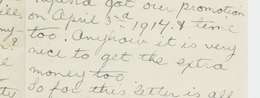 got our promotion
on April 3rd 1914. &
too. Anyhow it is very
nice to get the extra
money too
So for this letter is all